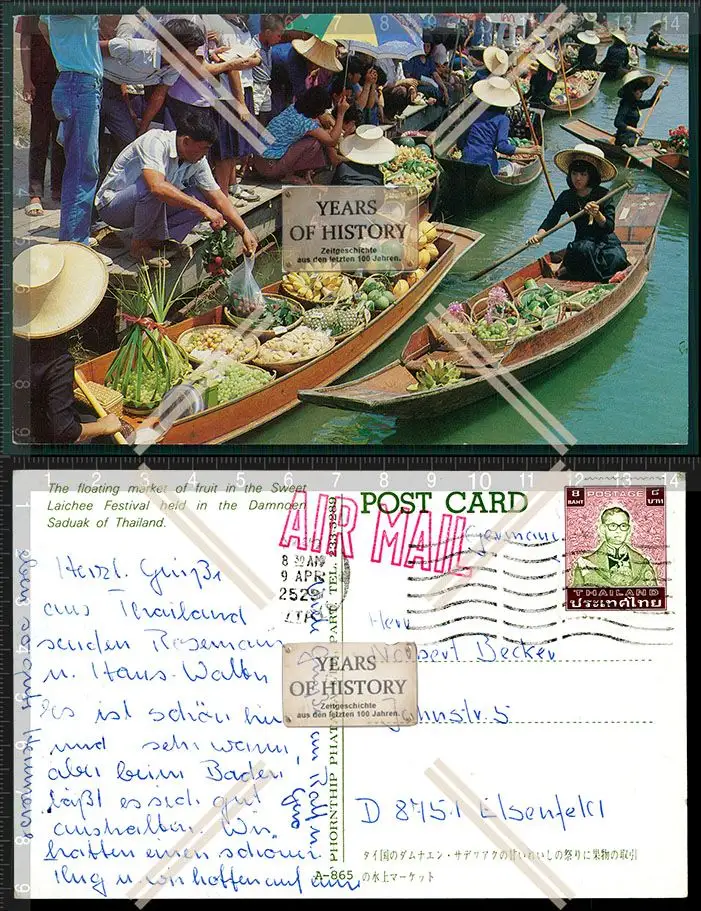 YEARS
OF HISTORY
Zeitgeschichte
aus den letzten 100 Jahren.
The floating market of fruit in the Sweet
Laichee Festival held in the Damnoen
Saduak of Thailand.
POST CARD
AIR MAIL
Germany
8 30 AM
9 APR
2529
8 BAHT
POSTAGE
๘ บาท
THAILAND
ประเทศไทย
Herzl. Grüße
aus Thailand
senden Rosemarie
u. Hans-Walter
Es ist schön hier
und sehr warm,
aber beim Baden
läßt es sich gut
aushalten. Wir
hatten einen schönen
Flug u. wir hoffen auf
Herr
Norbert Becker
Jahnstr. 5
D 8751 Elsenfeld
YEARS
OF HISTORY
Zeitgeschichte
aus den letzten 100 Jahren.
PHORNTHIP PHATANA
A-865
タイ国のダムナエン・サデゥアクの甘いれいしの祭りに果物の取引
の水上マーケット